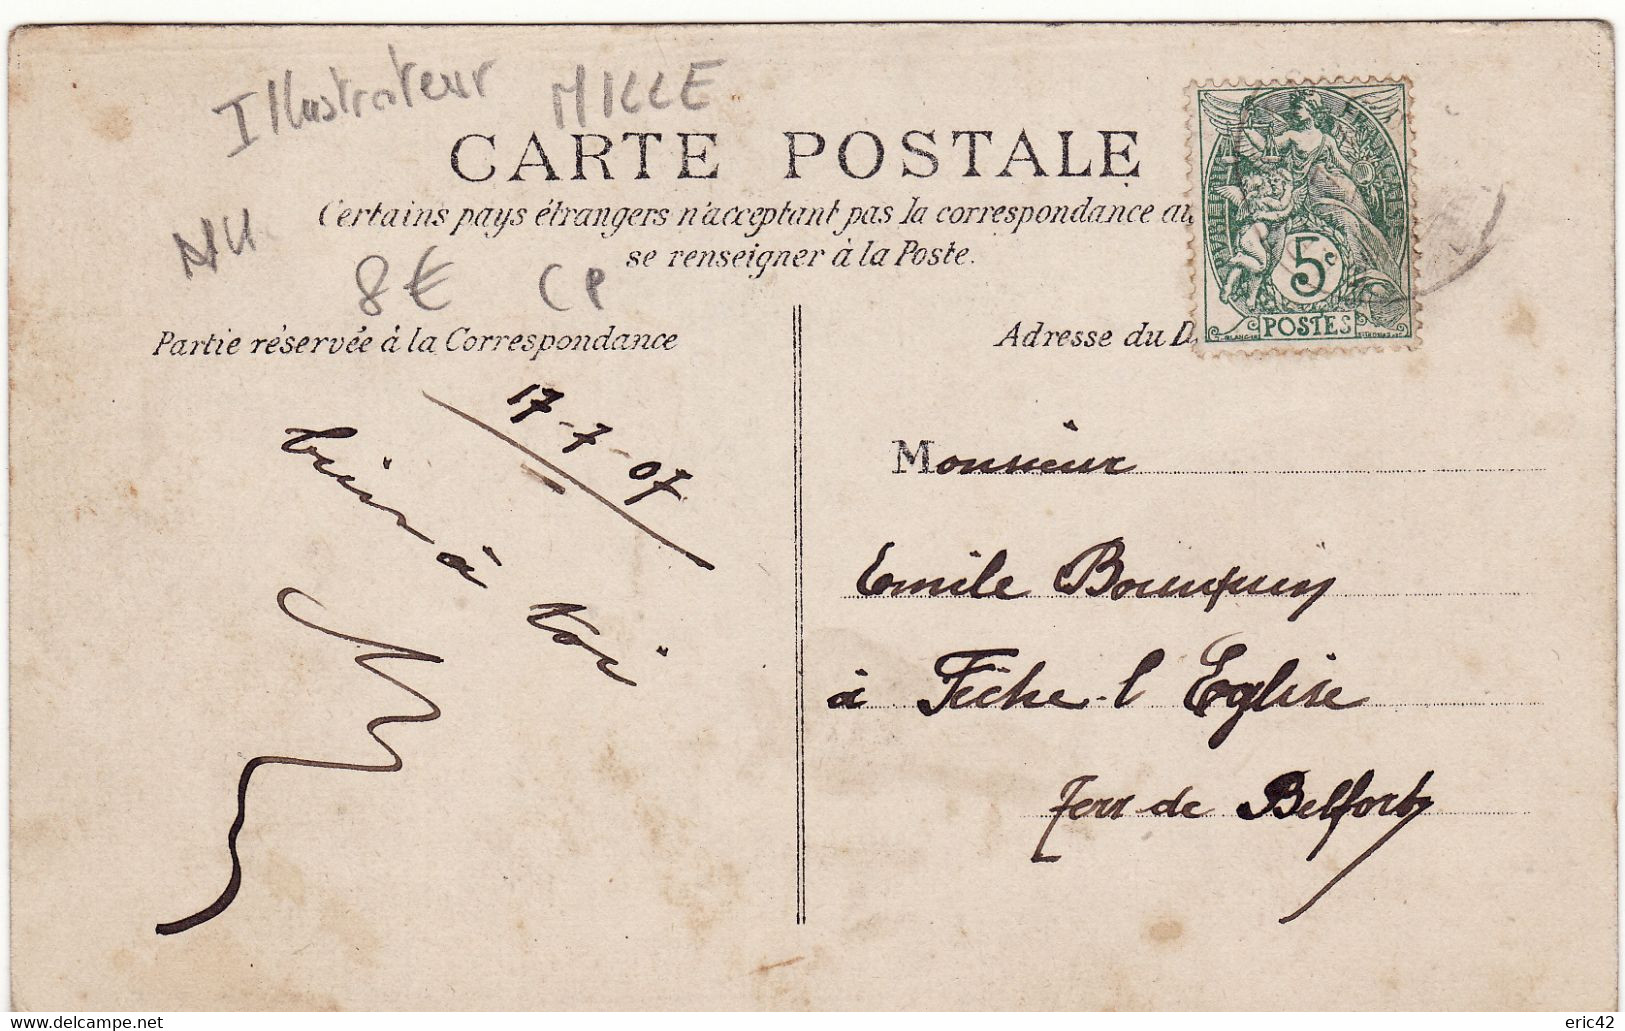 Illustrateur MILLE
CARTE POSTALE
Certains pays étrangers n'acceptant pas la correspondance au
se renseigner à la Poste.
NU
8€ CP
Partie réservée à la Correspondance
Adresse du D
FRANÇAISE
5c
POSTES
17-7-07
bien à toi
Monsieur
Emile
à Fêche-l'Eglise
Terr de Belfort
delcampe.net
eric42